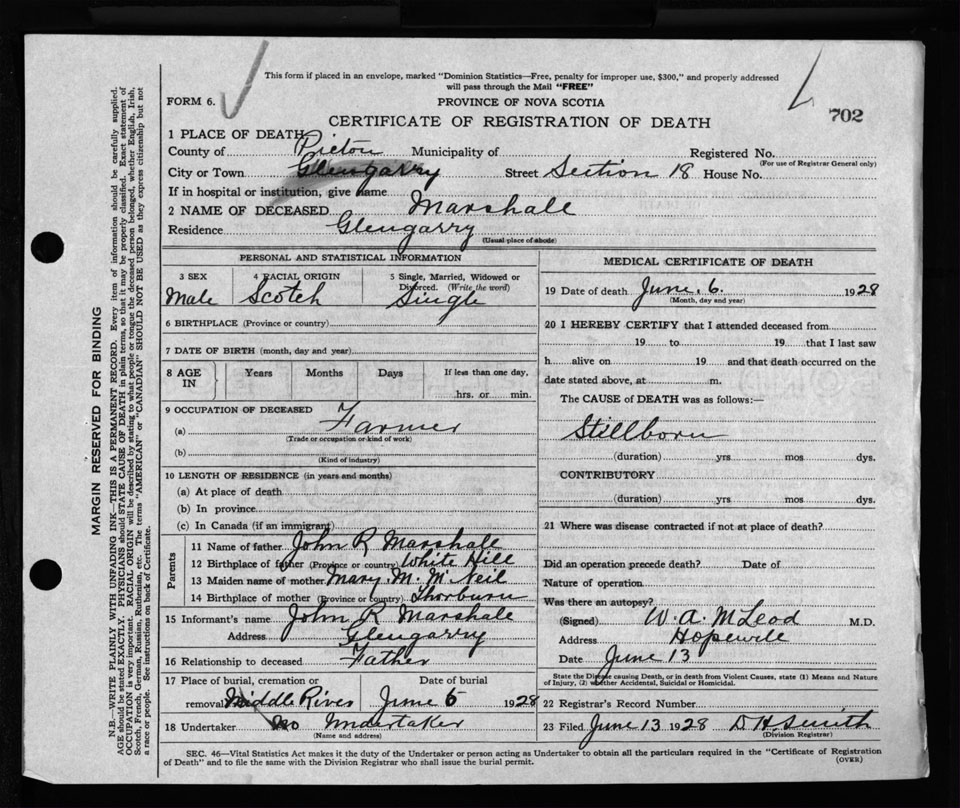 This form if placed in an envelope, marked "Dominion Statistics—Free, penalty for improper use, $300," and properly addressed
will pass through the Mail "FREE"
FORM 6.
PROVINCE OF NOVA SCOTIA
CERTIFICATE OF REGISTRATION OF DEATH
702
1 PLACE OF DEATH
County of Pictou Municipality of Registered No.
(For use of Registrar General only)
City or Town Glengarry Street Section 18 House No.
If in hospital or institution, give name
2 NAME OF DECEASED Marshall
Residence Glengarry
(Usual place of abode)
PERSONAL AND STATISTICAL INFORMATION
3 SEX 4 RACIAL ORIGIN 5 Single, Married, Widowed or
Divorced. (Write the word)
Male Scotch Single
6 BIRTHPLACE (Province or country)
7 DATE OF BIRTH (month, day and year)
8 AGE IN Years Months Days If less than one day,
hrs. or min.
9 OCCUPATION OF DECEASED
(a) Farmer
(Trade or occupation or kind of work)
(b)
(Kind of industry)
10 LENGTH OF RESIDENCE (in years and months)
(a) At place of death
(b) In province
(c) In Canada (if an immigrant)
Parents
11 Name of father John R Marshall
12 Birthplace of father (Province or country) White Hill
13 Maiden name of mother Mary. M. McNeil
14 Birthplace of mother (Province or country) Thorburn
15 Informant's name John R Marshall
Address Glengarry
16 Relationship to deceased Father
17 Place of burial, cremation or Date of burial
removal Middle River June 6 1928
18 Undertaker No Undertaker
(Name and address)
MEDICAL CERTIFICATE OF DEATH
19 Date of death June. 6. 1928
(Month, day and year)
20 I HEREBY CERTIFY that I attended deceased from
19 to 19 that I last saw
h alive on 19 and that death occurred on the
date stated above, at m.
The CAUSE of DEATH was as follows:—
Stillborn
(duration) yrs mos dys.
CONTRIBUTORY
(duration) yrs mos dys.
21 Where was disease contracted if not at place of death?
Did an operation precede death? Date of
Nature of operation
Was there an autopsy?
(Signed) W. A. McLeod M.D.
Address Hopewell
Date June 13
State the Disease causing Death, or in death from Violent Causes, state (1) Means and Nature
of Injury, (2) whether Accidental, Suicidal or Homicidal.
22 Registrar's Record Number
23 Filed June 13 1928 D H Smith
(Division Registrar)
SEC. 46—Vital Statistics Act makes it the duty of the Undertaker or person acting as Undertaker to obtain all the particulars required in the "Certificate of Registration
of Death" and to file the same with the Division Registrar who shall issue the burial permit.
(OVER)
MARGIN RESERVED FOR BINDING
N.B.—WRITE PLAINLY WITH UNFADING INK—THIS IS A PERMANENT RECORD. Every item of information should be carefully supplied.
AGE should be stated EXACTLY. PHYSICIANS should STATE CAUSE OF DEATH in plain terms, so that it may be properly classified. Exact statement of
OCCUPATION is very important. RACIAL ORIGIN will be described by stating to what people or tongue the deceased person belonged, whether English, Irish,
Scotch, French, German, Russian, Ruthenian, etc. The terms "AMERICAN" or "CANADIAN" SHOULD NOT BE USED as they express citizenship but not
a race or people. See instructions on back of Certificate.